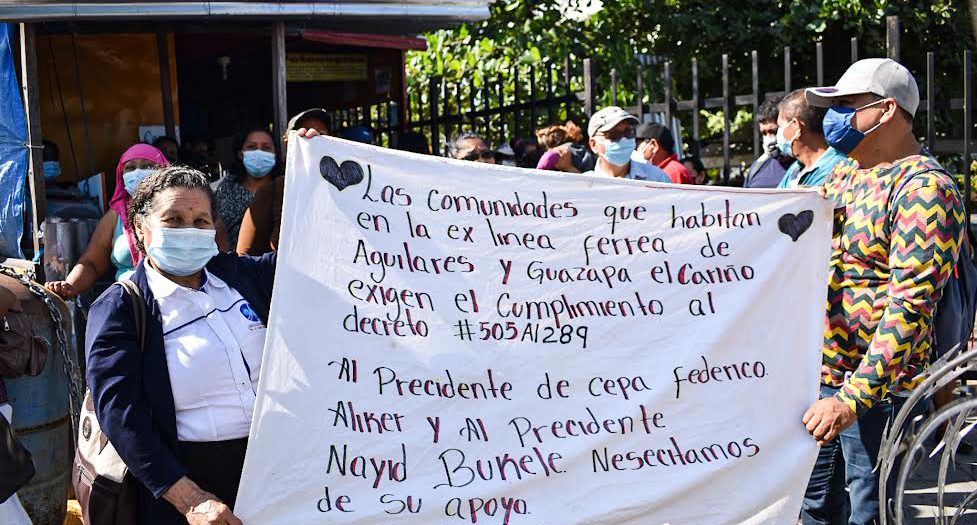 Las Comunidades que habitan
en la ex linea ferrea de
Aguilares y Guazapa el Cariño
exigen el Cumplimiento al
decreto #505A1289
Al Precidente de cepa Federico.
Aliker y Al Precidente
Nayid Bukele Nesecitamos
de su apoyo.